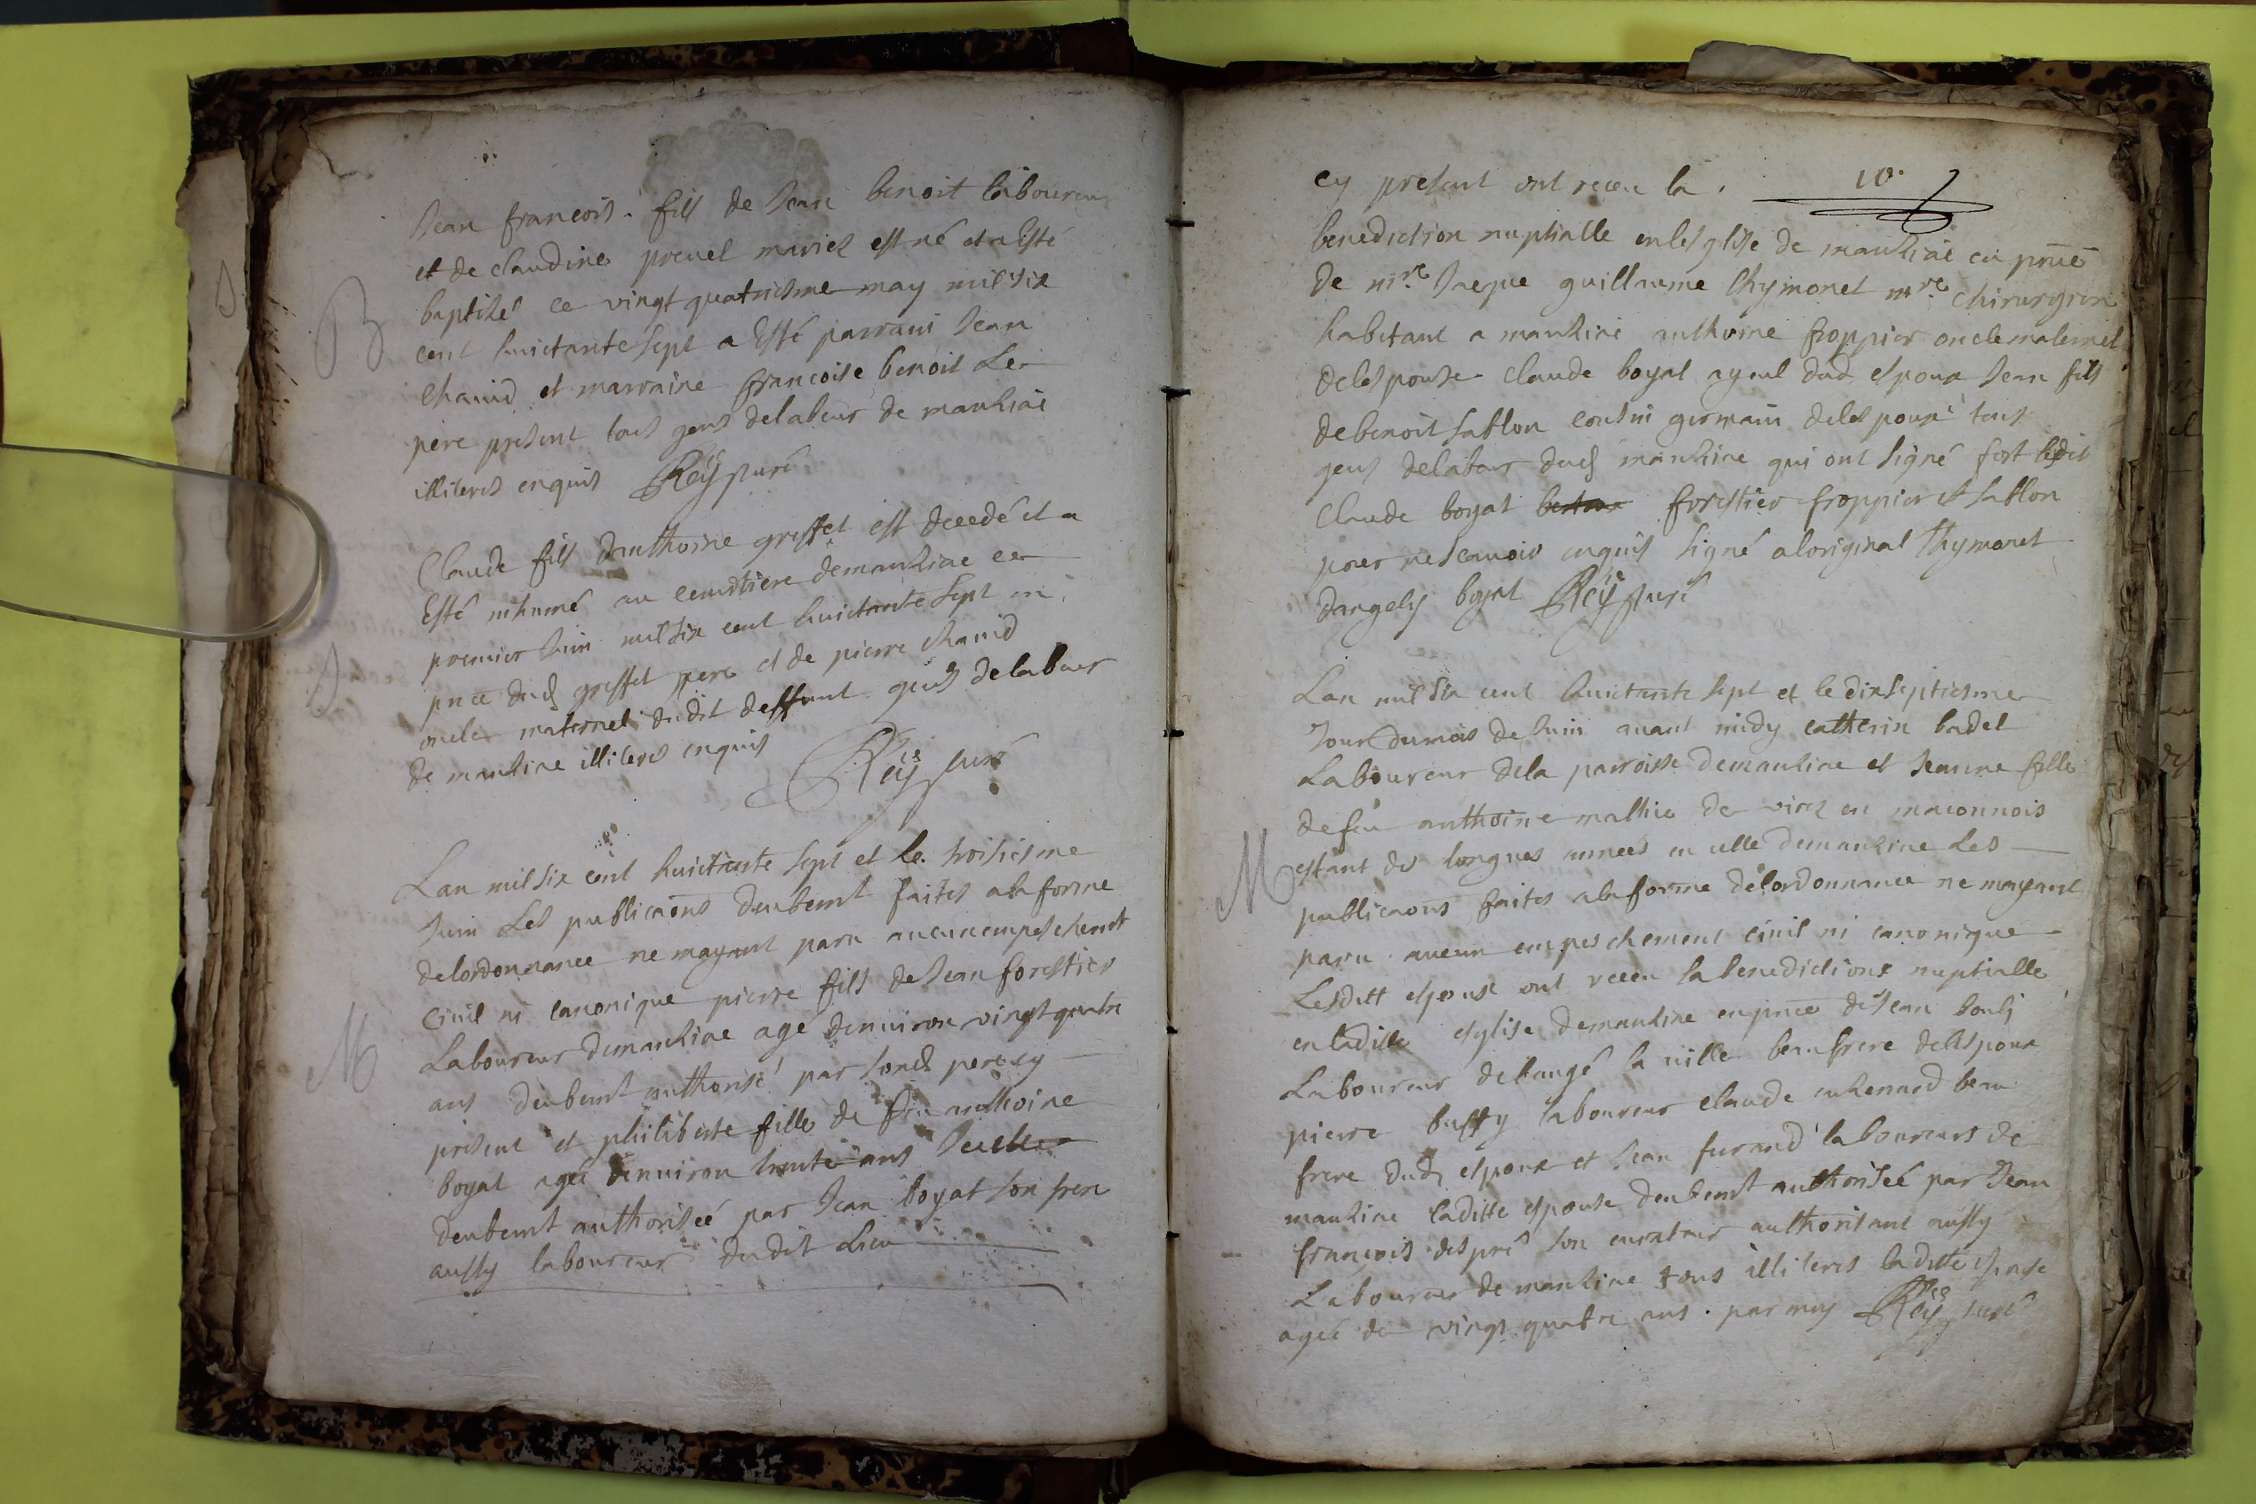 B
Jean francois fils de Jean benoit laboureur
et de claudine prevel mariez est né et a Esté
baptisé ce vingt quatriesme may mil six
cent huictante sept a Esté parrain Jean
Chanid et marraine francoise benoit Le
pere present tous gens delabeur de mauhiac
illiteres enquis Reÿ Curé
Claude fils danthoine greffet est decedé et a
Esté inhumé au cemitiere de mauhiac ce
premier Juin mil six cent huictante sept en
pnce dud greffet pere et de pierre chanid
oncle maternel dudit deffunt gens delabeur
de mauhiac illiteres enquis
Reÿ Curé
M
Lan mil six cent huictante sept et le troisiesme
Juin Les publicaons deubemt faites a la forme
delordonnance ne mayant paru aucun empeschemt
Civil ni canonique pierre fils de Jean forestier
Laboureur de mauhiac agé denviron vingt quatre
ans deubemt authorisé par sond pere cy
present et philiberte fille de feu anthoine
boyat agée denviron trente ans
deubemt authorisée par Jean boyat son frere
aussy laboureur dudit Lieu
10
cy present ont receu la
benediction nuptialle enlesglise de mauhiac en pnce
de mre Jaque guillaume Thymonet mre chirurgien
habitant a mauhiac anthoine froppier oncle maternel
delespouse Claude boyat ayeul dud espoux Jean fils
de benoit sablon cousin germain delespouse tous
gens delabeur dud mauhiac qui ont signé fort ledit
Claude boyat forestier froppier et sablon
pour ne scavoir enquis signé aloriginal Thymonet
dangely boyat Reÿ Curé
M
Lan mil six cent huictante sept et le dixseptiesme
Jour dumois de Juin avant midy catherin badet
Laboureur dela parroisse de mauhiac et Jeanne fille
de feu anthoine mathie de virez en maconnois
estant des longues années en celle de mauhiac Les
publicaons faites a la forme delordonnance ne mayant
paru aucun empeschement civil ni canonique
Lesditt espouse ont receu la benedictions nuptialle
en laditte esglise de mauhiac en pnce de Jean
Laboureur de laugé la ville beaufrere delespoux
pierre buffy laboureur claude beau
frere dud espoux et Jean furand laboureurs de
mauhiac laditte espouse deubemt authorisée par Jean
françois despré son curateur authorisant aussy
Laboureur de mauhiac tous illiteres laditte espouse
agée de vingt quatre ans par moy Reÿ Curé